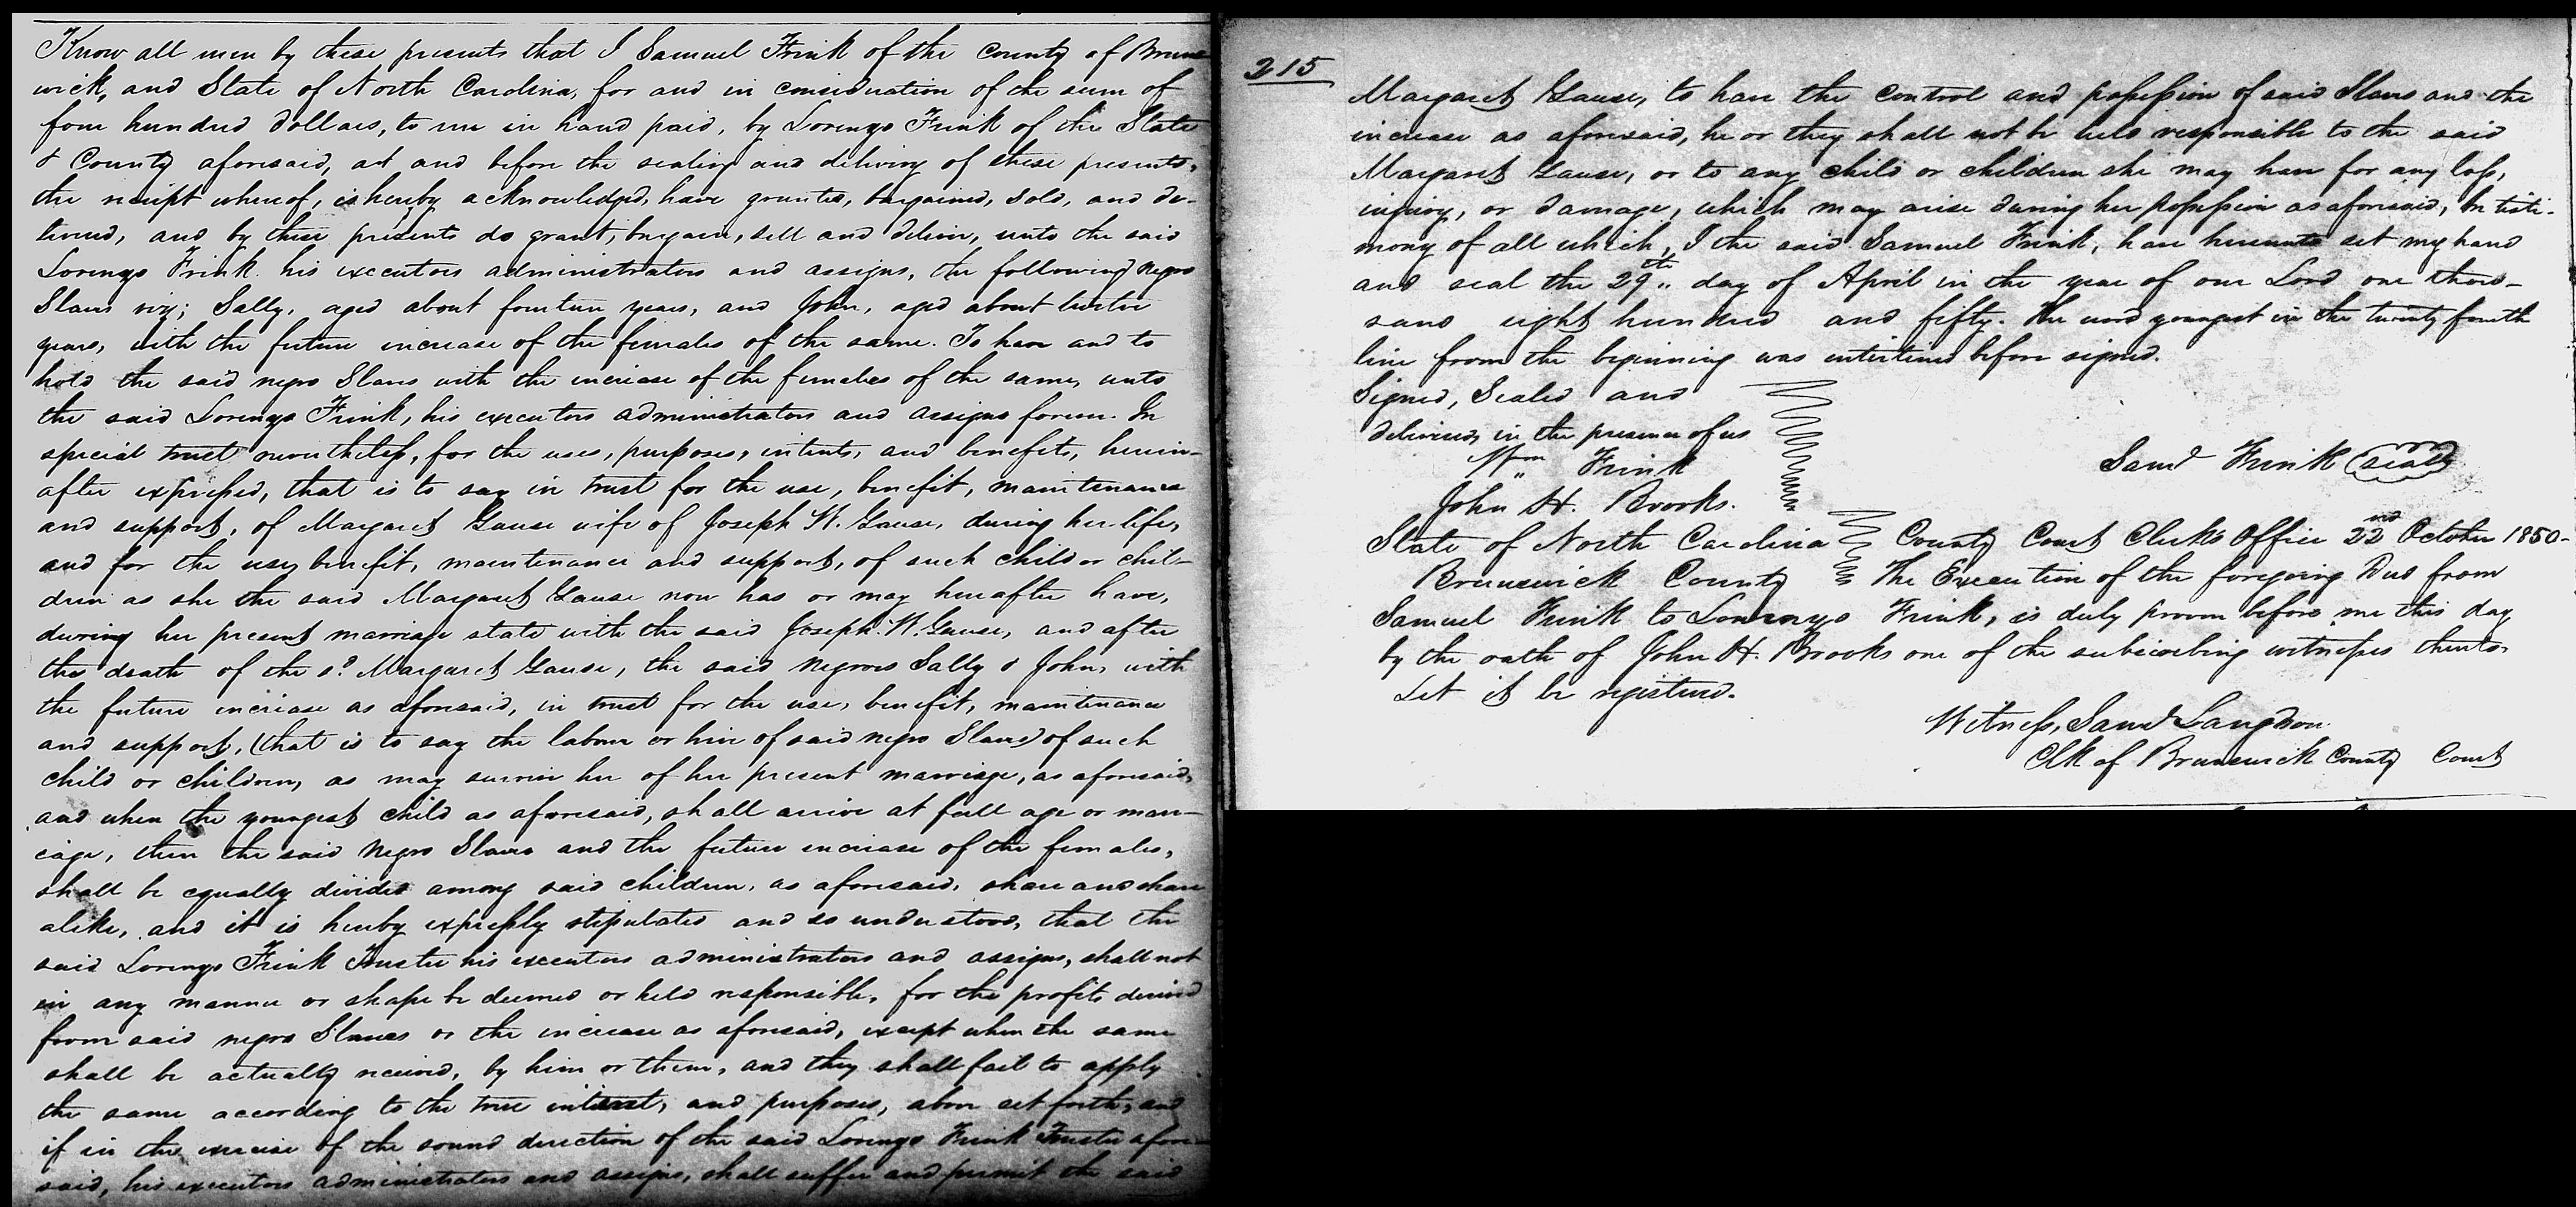 Know all men by these presents that I Samuel Frink of the County of Bruns
wick, and State of North Carolina, for and in consideration of the sum of
four hundred dollars, to me in hand paid, by Lorenzo Frink of the State
& County aforesaid, at and before the sealing and delivery of these presents,
the receipt whereof, is hereby acknowledged, have granted, bargained, sold, and de-
livered, and by these presents do grant, bargain, sell and deliver, unto the said
Lorenzo Frink his executors administrators and assigns, the following negro
Slaves viz; Sally, aged about fourteen years, and John, aged about twelve
years, with the future increase of the females of the same. To have and to
hold the said negro Slaves with the increase of the females of the same, unto
the said Lorenzo Frink, his executors administrators and assigns forever. In
special trust nevertheless, for the uses, purposes, intents, and benefits, herein-
after expressed, that is to say in trust for the use, benefit, maintenance
and support, of Margaret Gause wife of Joseph W. Gause, during her life,
and for the use, benefit, maintenance and support, of such child or chil-
dren as she the said Margaret Gause now has or may hereafter have,
during her present marriage state with the said Joseph W. Gause, and after
the death of the sd. Margaret Gause, the said negroes Sally & John, with
the future increase as aforesaid, in trust for the use, benefit, maintenance
and support, (that is to say the labour or hire of said negro Slaves) of such
child or children, as may survive her of her present marriage, as aforesaid,
and when the youngest child as aforesaid, shall arrive at full age or marr-
iage, then the said Negro Slaves and the future increase of the females,
shall be equally divided among said children, as aforesaid, share and share
alike, and it is hereby expressly stipulated and so understood, that the
said Lorenzo Frink Trustee his executors administrators and assigns, shall not
in any manner or shape be deemed or held responsible, for the profits derived
from said negro Slaves or the increase as aforesaid, except when the same
shall be actually received, by him or them, and they shall fail to apply
the same according to the true interest, and purposes, above set forth, and
if in the exercise of the sound direction of the said Lorenzo Frink Trustee afore-
said, his executors administrators and assigns, shall suffer and permit the said
215
Margaret Gause, to have the control and possession of said Slaves and the
increase as aforesaid, he or they shall not be held responsible to the said
Margaret Gause, or to any child or children she may have for any loss,
injury, or damage, which may arise during her possession as aforesaid, In testi-
mony of all which, I the said Samuel Frink, have hereunto set my hand
and seal the 29th day of April in the year of our Lord one thou-
sand eight hundred and fifty. The word youngest in the twenty fourth
line from the beginning was interlined before signed.
Signed, Sealed and
delivered, in the presence of us
Wm Frink
Saml Frink (seal)
John H. Brooks.
State of North Carolina County Court Clerks Office 22nd October 1850-
Brunswick County The Execution of the foregoing Deed from
Samuel Frink to Lorenzo Frink, is duly proven before me this day
by the oath of John H. Brooks one of the subscribing witnesses thereto.
Let it be registered.
Witness, Saml Langdon
Clk of Brunswick County Court